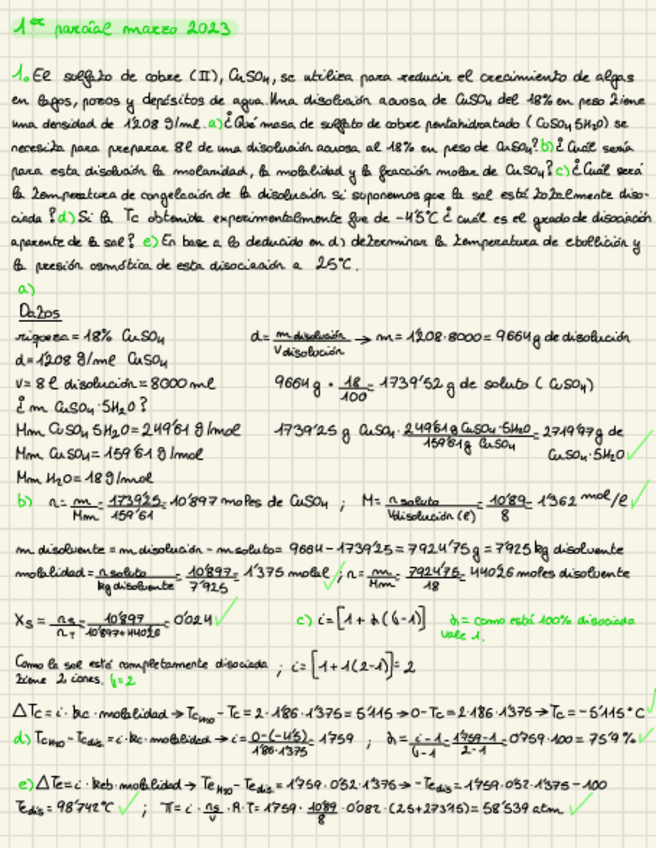 1er parcial marzo 2023
1. El sulfato de cobre (II), CuSO4, se utiliza para reducir el crecimiento de algas
en lagos, pozos y depósitos de agua. Una disolución acuosa de CuSO4 del 18% en peso tiene
una densidad de 1'208 g/ml. a) ¿Qué masa de sulfato de cobre pentahidratado (CuSO4 5H2O) se
necesita para preparar 8l de una disolución acuosa al 18% en peso de CuSO4? b) ¿Cuál sería
para esta disolución la molaridad, la molalidad y la fracción molar de CuSO4? c) ¿Cuál será
la temperatura de congelación de la disolución si suponemos que la sal está totalmente diso-
ciada? d) Si la Tc obtenida experimentalmente fue de -4'5°C ¿cuál es el grado de disociación
aparente de la sal? e) En base a lo deducido en d) determinar la temperatura de ebollición y
la presión osmótica de esta disociación a 25°C.
a)
Datos
riqueza = 18% CuSO4 d = m disolución / V disolución → m = 1'208·8000 = 9664 g de disolución
d = 1'208 g/ml CuSO4
v = 8 l disolución = 8000 ml 9664 g · 18/100 = 1739'52 g de soluto (CuSO4)
¿m CuSO4·5H2O?
Mm CuSO4 5H2O = 249'61 g/mol 1739'25 g CuSO4 · 249'61 g CuSO4·5H2O / 159'61 g CuSO4 = 2719'97 g de
Mm CuSO4 = 159'61 g/mol CuSO4·5H2O ✓
Mm H2O = 18 g/mol
b) n = m/Mm = 1739'25/159'61 = 10'897 moles de CuSO4 ; M = n soluto / Vdisolución (l) = 10'89/8 = 1'362 mol/l ✓
m disolvente = m disolución - m soluto = 9664 - 1739'25 = 7924'75 g = 7'925 kg disolvente
molalidad = n soluto / kg disolvente = 10'897/7'925 = 1'375 molal ✓ ; n = m/Mm = 7924'75/18 = 440'26 moles disolvente
Xs = ns/nT = 10'897/10'897+440'26 = 0'024 ✓ c) i = [1 + α(γ-1)] α = como está 100% disociada
vale 1.
Como la sal está completamente disociada ; i = [1 + 1(2-1)] = 2
tiene 2 iones. γ=2
ΔTc = i · kc · molalidad → TcH2O - Tc = 2 · 1'86 · 1'375 = 5'115 → 0 - Tc = 2·1'86·1'375 → Tc = -5'115°C ✓
d) TcH2O - Tcdis = i · kc · molalidad → i = 0-(-4'5)/1'86·1'375 = 1'759 ; α = i-1/γ-1 = 1'759-1/2-1 = 0'759·100 = 75'9% ✓
e) ΔTe = i · keb · molalidad → TeH2O - Tedis = 1'759·0'52·1'375 → -Tedis = 1'759·0'52·1'375 - 100
Tedis = 98'742°C ✓ ; π = i · ns/v · R·T = 1'759 · 10'89/8 · 0'082 · (25+273'15) = 58'539 atm ✓